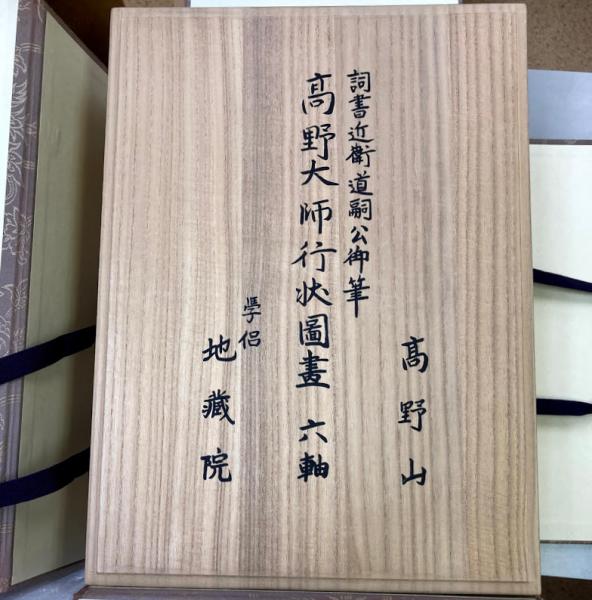 高野山
詞書近衛道嗣公御筆
高野大師行状圖畫 六軸
學侶
地藏院